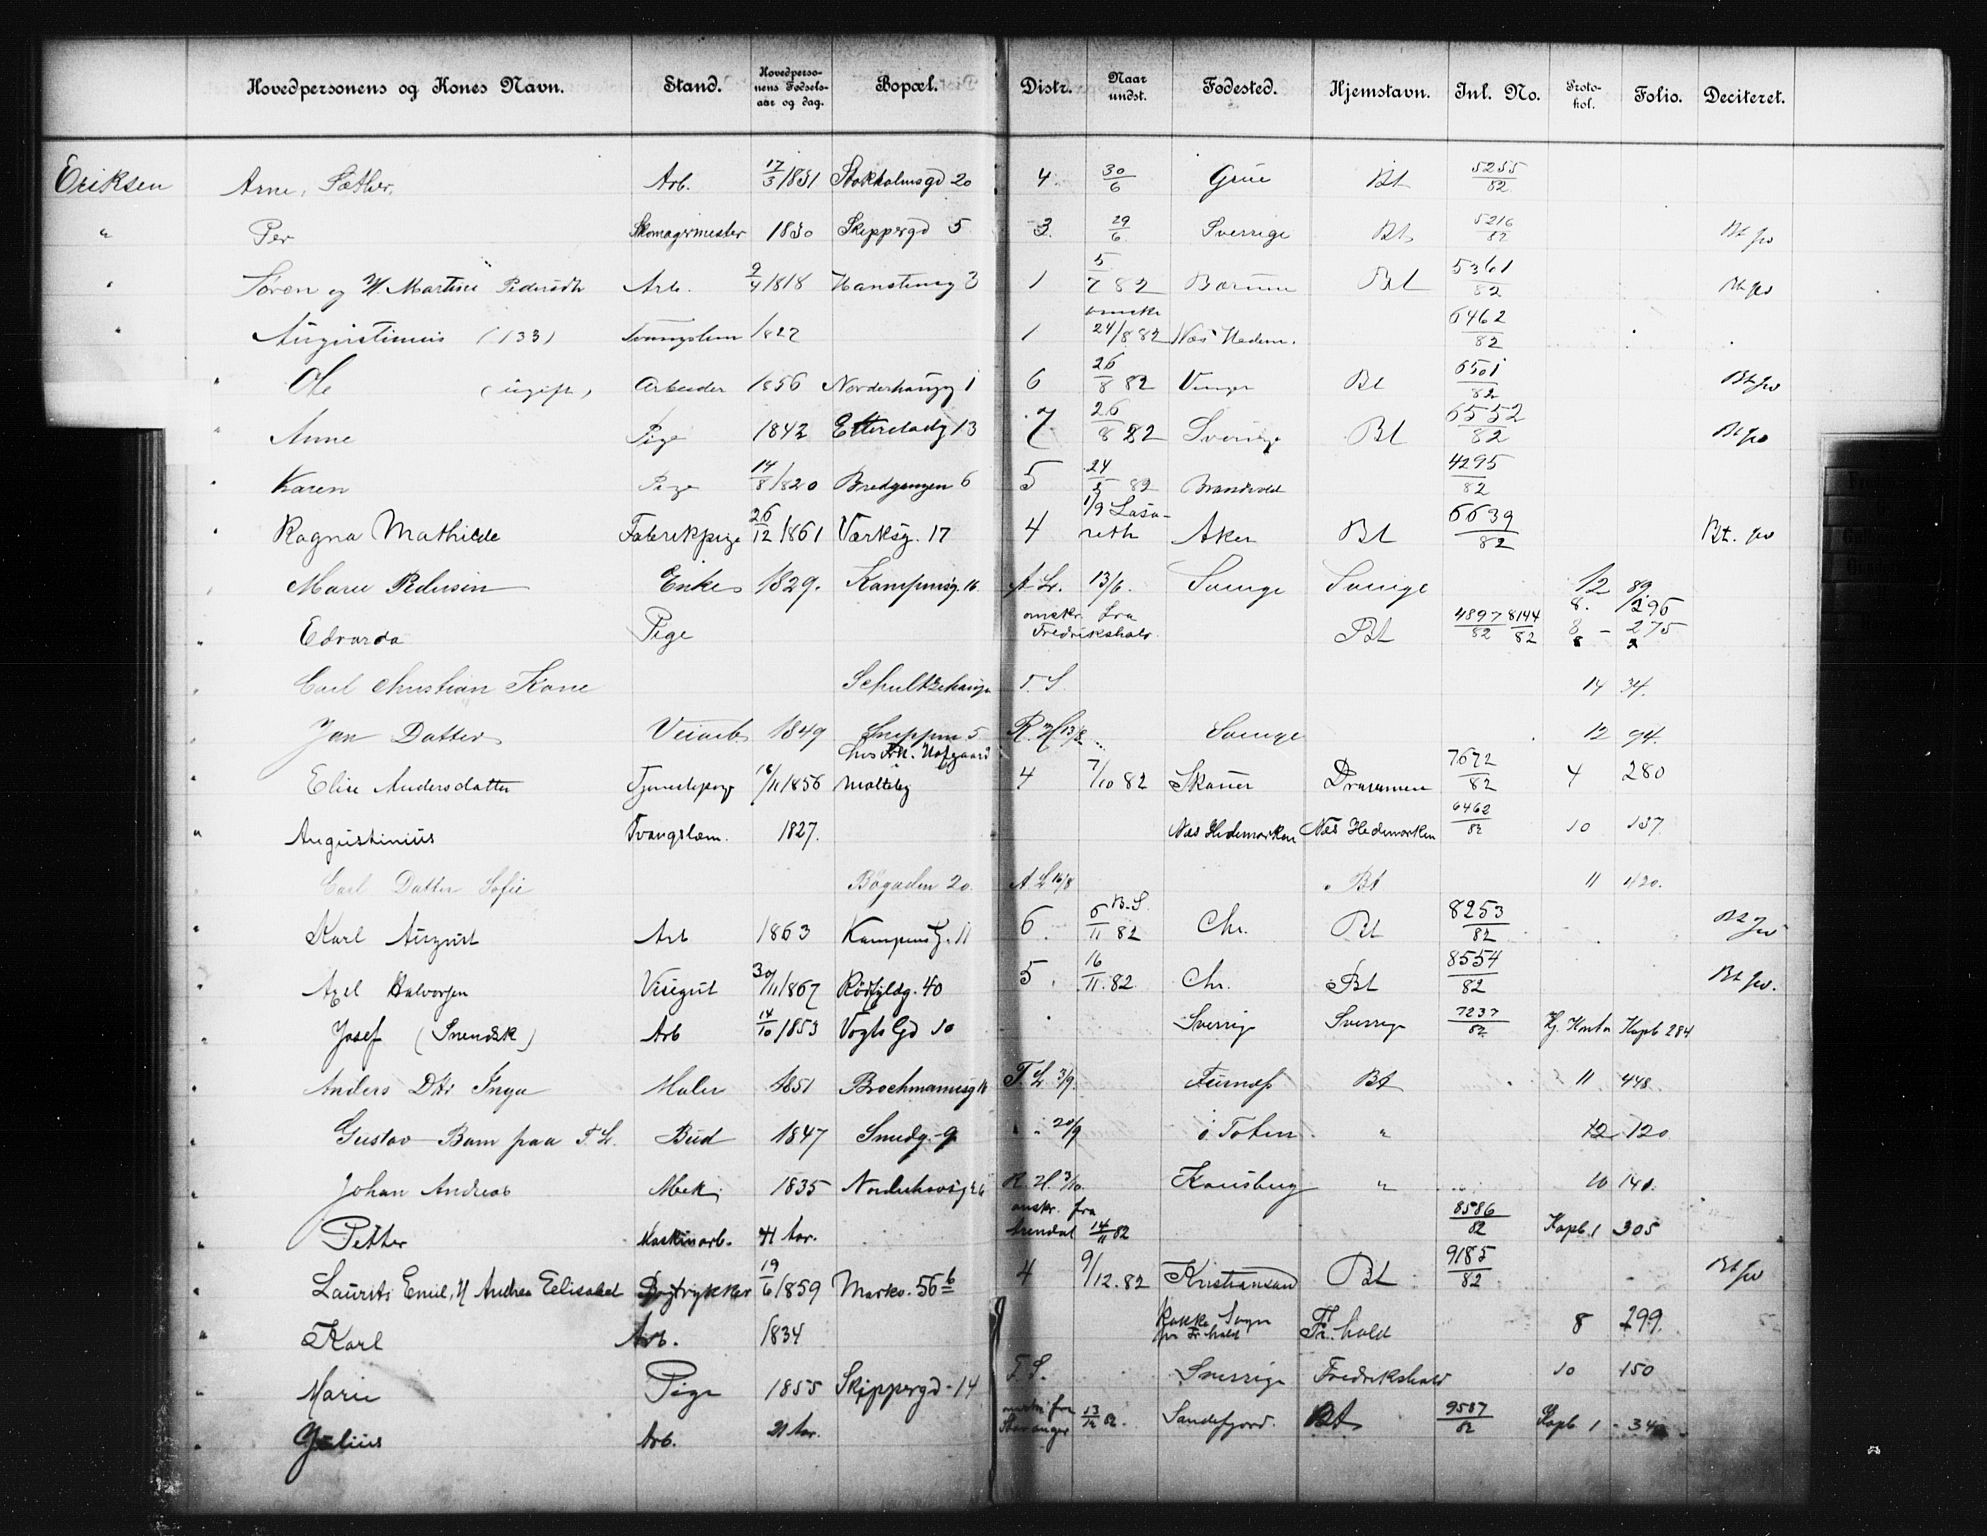 Hovedpersonens og Kones Navn. Stand. Hovedpersonens Fødselsaar og dag. Bopæl. Distr. Naar undst. Fødested. Hjemstavn. Inl. No. Protokol. Folio. Deciteret.
Eriksen Arne, Sæther. Arb. 17/3 1831 Stokholmsgd 20 4. 30/6 Grue Bt 5255/82
" Per Skomagermester 1830 Skippergd 5 3. 29/6 Sverrige Bt 5216/82 Bt
" Søren og H. Martine Pedersdtr Arb. 9/4 1818 3 1 5/7 82 Bærum Bt 5361/82 Bt
" Augustinius (133) Tvangslem 1827 1 24/8 82 Næs Hedem. 6462/82
" Ole (ugift) Arbeider 1856 Norderhaugg 1 6 26/8 82 Vinger Bt 6501/82 Bt
" Anne Pige 1842 Etterstadg 13 7. 26/8 82 Sverige Bt 6552/82 Bt
" Karen Pige 14/8 1820 Bredgangen 6 5 24/5 82 Brandvold 4295/82
" Ragna Mathilde Fabrikpige 26/12 1861 Værksg. 17 4 1/9 Lasareth Aker Bt 6639/82 Bt.
" Marie Pedersen Enke 1829. Kampensg. 16 A L. 13/6. Sverige Sverige 12 89.
" Edvarda Pige onskr. fra Fredrikshald. Bt 4897/82 8144/82 8. 296 8 - 275
" Carl Christian Kone T. S. 14 34.
" Jan Datter Veiarb. 1849 5 R. H. 13/8 Sverige 12 94.
" Elise Andersdatter Tjenestepige 16/11 1856 hos 4 7/10 82 Drammen 7672/82 4 280
" Augustinius Tvangslem. 1827. Næs Hedemarken Næs Hedemarken 6462/82 10 137
" Carl Datter Sofie Bøgaden 20. A L 16/8 Bt 11 420.
" Karl August Arb 1863 Kampensg. 11 6. 6/11 82 B.S. Chr. Bt 8253/82 Bt
" Axel Halvorsen Visegut 30/11 1867 Rødfyldg. 40 5. 16/11. 82. Chr. Bt 8554/82 Bt
" Josef (Svendsk) Arb 14/10 1853 Vogts Gd 10 Sverrig Sverrige 7237/82 Hj. Kontor Kopb 284
" Anders Dtr Inga Maler 1851 Brochmannsg T. L. 3/9. Furnes Bt 11 448.
" Gustav Barn paa T. L. Bud 1847 Smedg. 9 " " 20/9 ø Toten " 12 120.
" Johan Andreas Mek. 1835 R. H. 3/10. Konsberg " 10 140.
" Petter Maskinarb. 41 Aar. onskr. fra Arendal 14/11 82 8586/82 Kopb 1 305
" Laurits Emil, H Andrea Elisabet Bogtrykker 19/6 1859 Markv. 56 b 4 9/12. 82 Kristiansand Bt 9185/82 Bt
" Karl Arb. 1834 Rakke Sogn pr Fr. hald Fr. hald 8 299.
" Marie Pige 1855 Skippergd - 14 T. S. Sverrige Fredrikshald 10 150
" Julius Arb. 21 Aar. onskr. fra Stavanger 13/12 82. Sandefjord. Bt 9587/82 Kopb 1